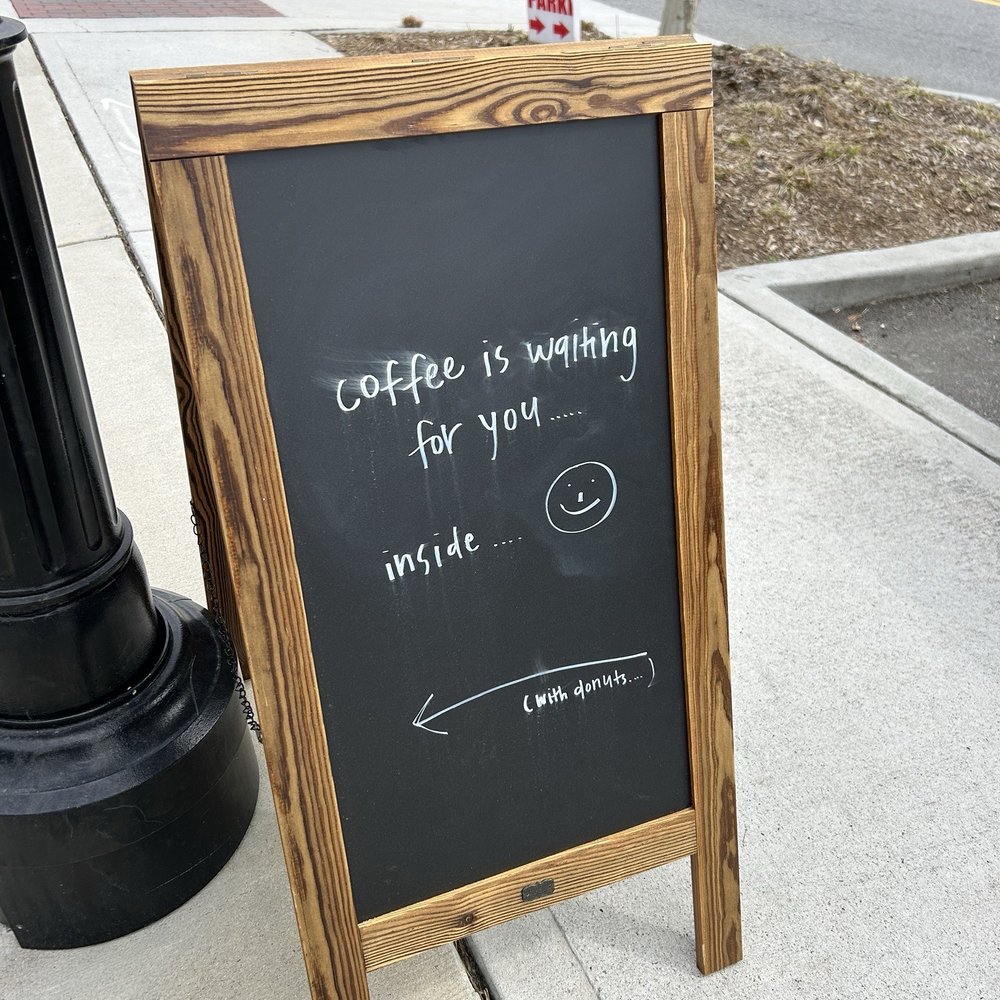 PARKI
coffee is waiting
for you.....
inside ....
(with donuts....)